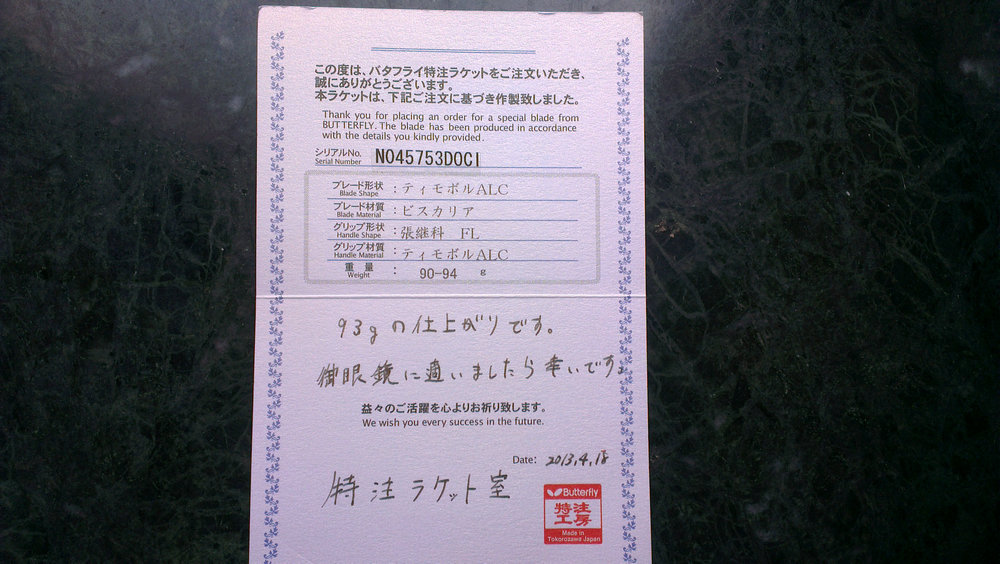 この度は、バタフライ特注ラケットをご注文いただき、
誠にありがとうございます。
本ラケットは、下記ご注文に基づき作製致しました。
Thank you for placing an order for a special blade from
BUTTERFLY. The blade has been produced in accordance
with the details you kindly provided.
シリアルNo.
Serial Number
N045753DOCI
ブレード形状
Blade Shape
:ティモボルALC
ブレード材質
Blade Material
:ビスカリア
グリップ形状
Handle Shape
:張継科 FL
グリップ材質
Handle Material
:ティモボルALC
重量
Weight
: 90-94 g
93gの仕上がりです。
御眼鏡に適いましたら幸いです。
益々のご活躍を心よりお祈り致します。
We wish you every success in the future.
Date: 2013,4,18
特注ラケット室
Butterfly
特注
工房
Made in
Tokorozawa Japan